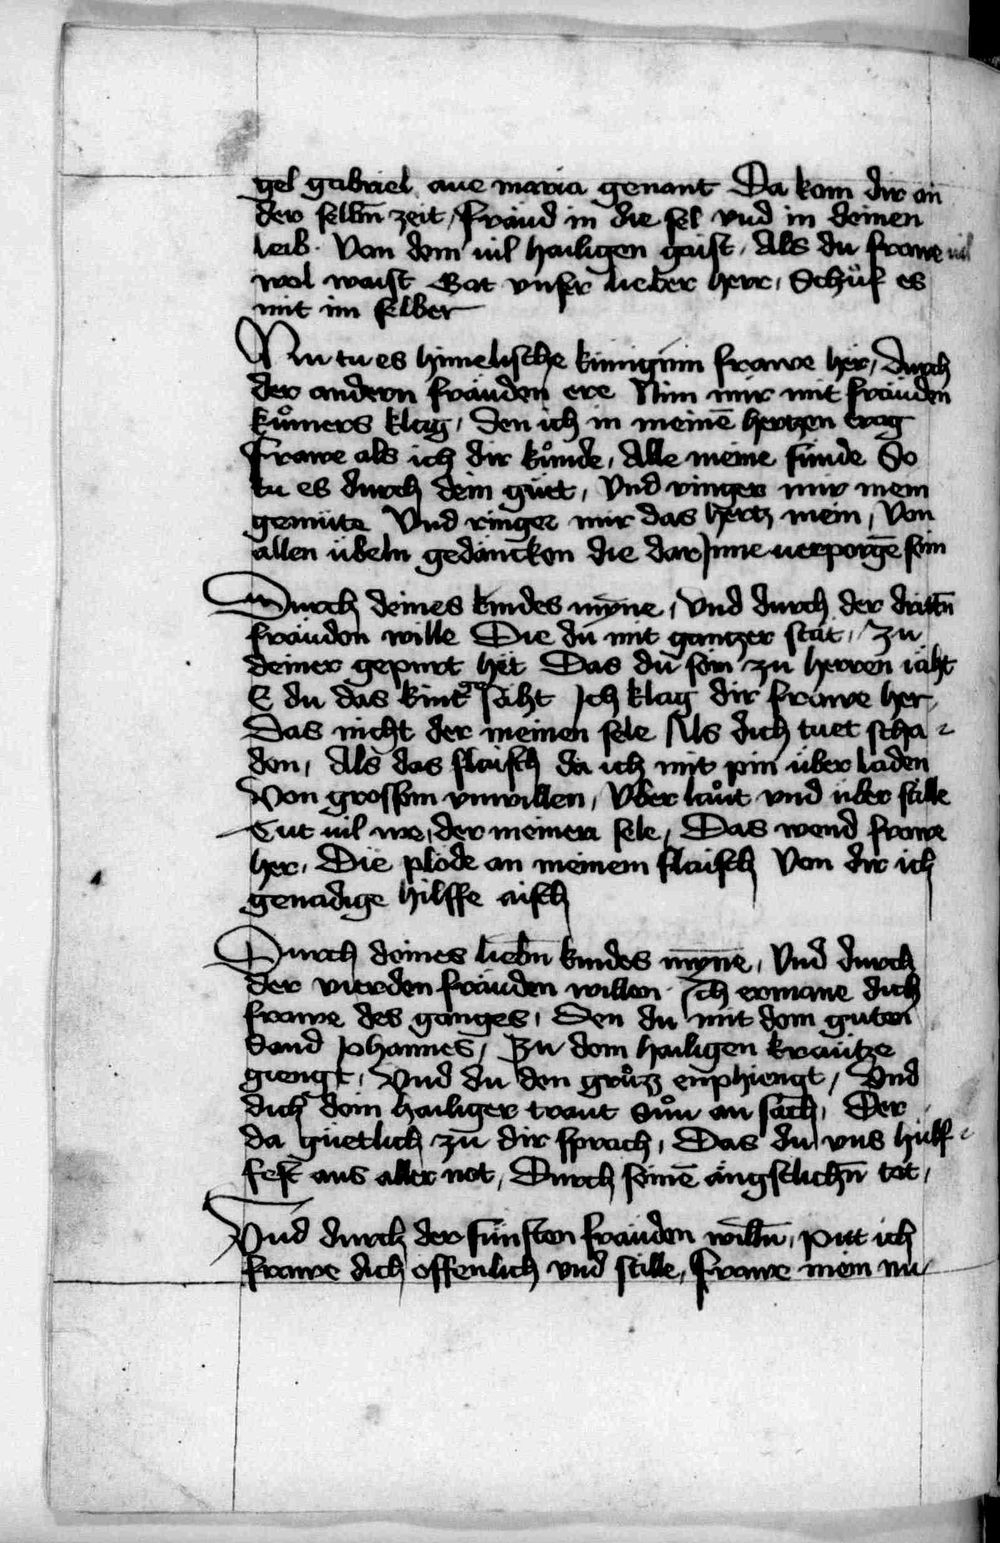 gel gabriel aue maria genant Da kam dir an
der selbn̄ zeit / fräud in die sel vnd in deinen
leib. Von dem uil hailigen gaist, Als du frawe uil
wol waist Got vnser lieber herr, Schůf es
mit im selber
Nu tu es himelische künigiin frawe her, durch
der andern fräuden ere Nim mir mit fräuden
kůmers klag, den ich in meinē hertzen trag
Frawe als ich dir kůnde, Alle meine sünde So
tu es durch dein güet, Vnd ringer mir mein
gemüte Vnd ringer mir das hertz mein, Von
allen übeln gedäncken die darJnne uerporgē sein
Durch deines kindes myn̄e, Vnd durch der drittn̄
fräuden wille Die du mit gantzer stät, zu
deiner gepurt het Das du sein zu herren iäht
E du das kint säht Jch klag dir frawe her,
Das nicht der meinen sele Als dich tuet scha-
den, Als das flaisch da ich mit pin über laden
Von grossem vnwillen, Vber lawt vnd über stille
Tut uil we, der meinen sele, Das wend frawe
her, Die plöde an meinem flaisch Von dir ich
genadige hilffe aisch
Durch deines liebn̄ kindes myn̄e, Vnd durch
der vierden fräuden willen Ich ermane dich
frawe des ganges, Den du mit dem guten
Sand Johannes, Zu dem hailigen kräutze
giengt, Vnd du den grůzz enphiengt, Vnd
dich dein hailiger traut sůn an sach, Der
da güetlich zu dir sprach, Das du vns hülf-
fest aus aller not, Durch seinē ängstlichn̄ tot,
Vnd durch der fünften fräuden willn̄, pitt ich
frawe dich offenlich vnd stille, Frawe mein nu